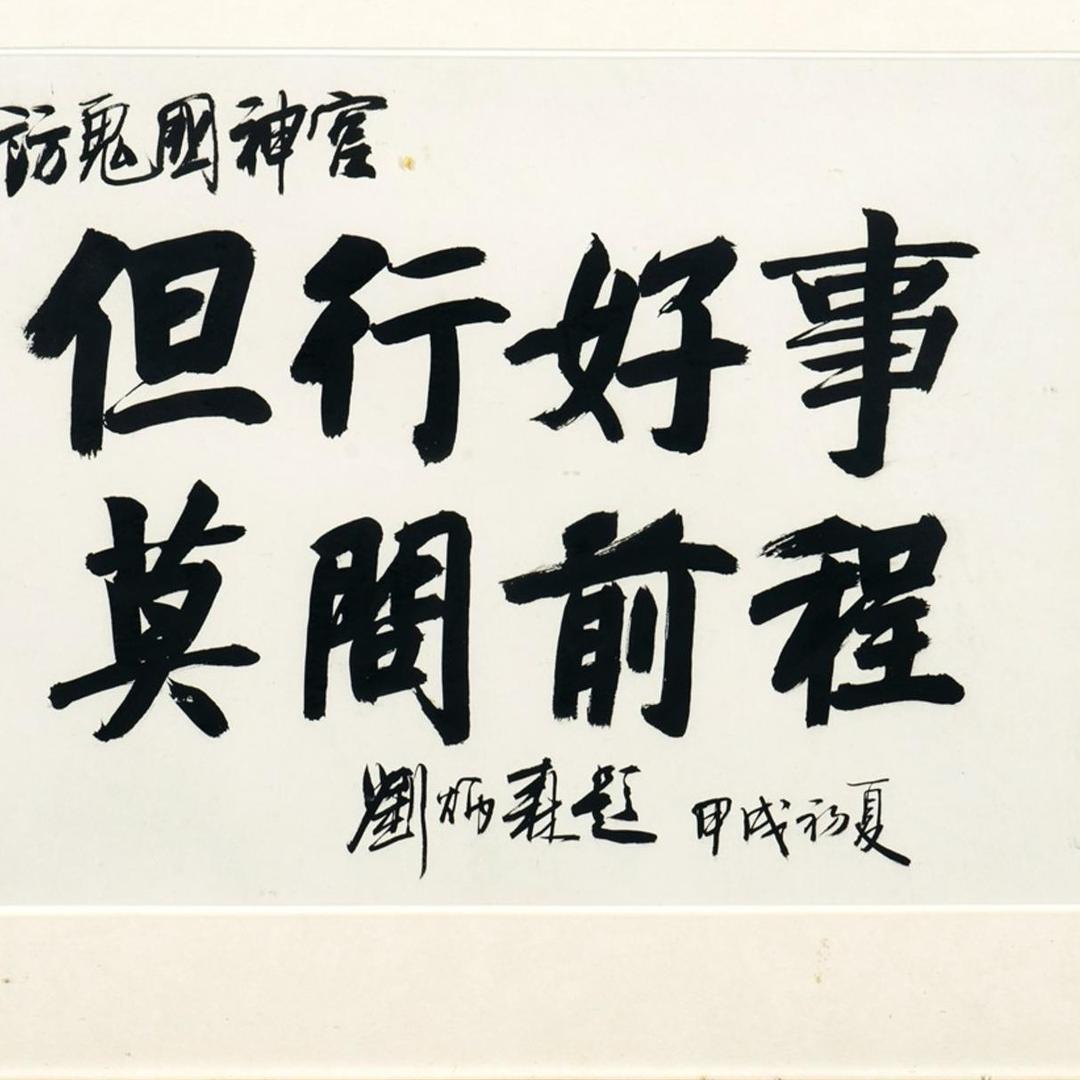 访鬼國神宫
但行好事
莫問前程
劉炳森題 甲戌初夏